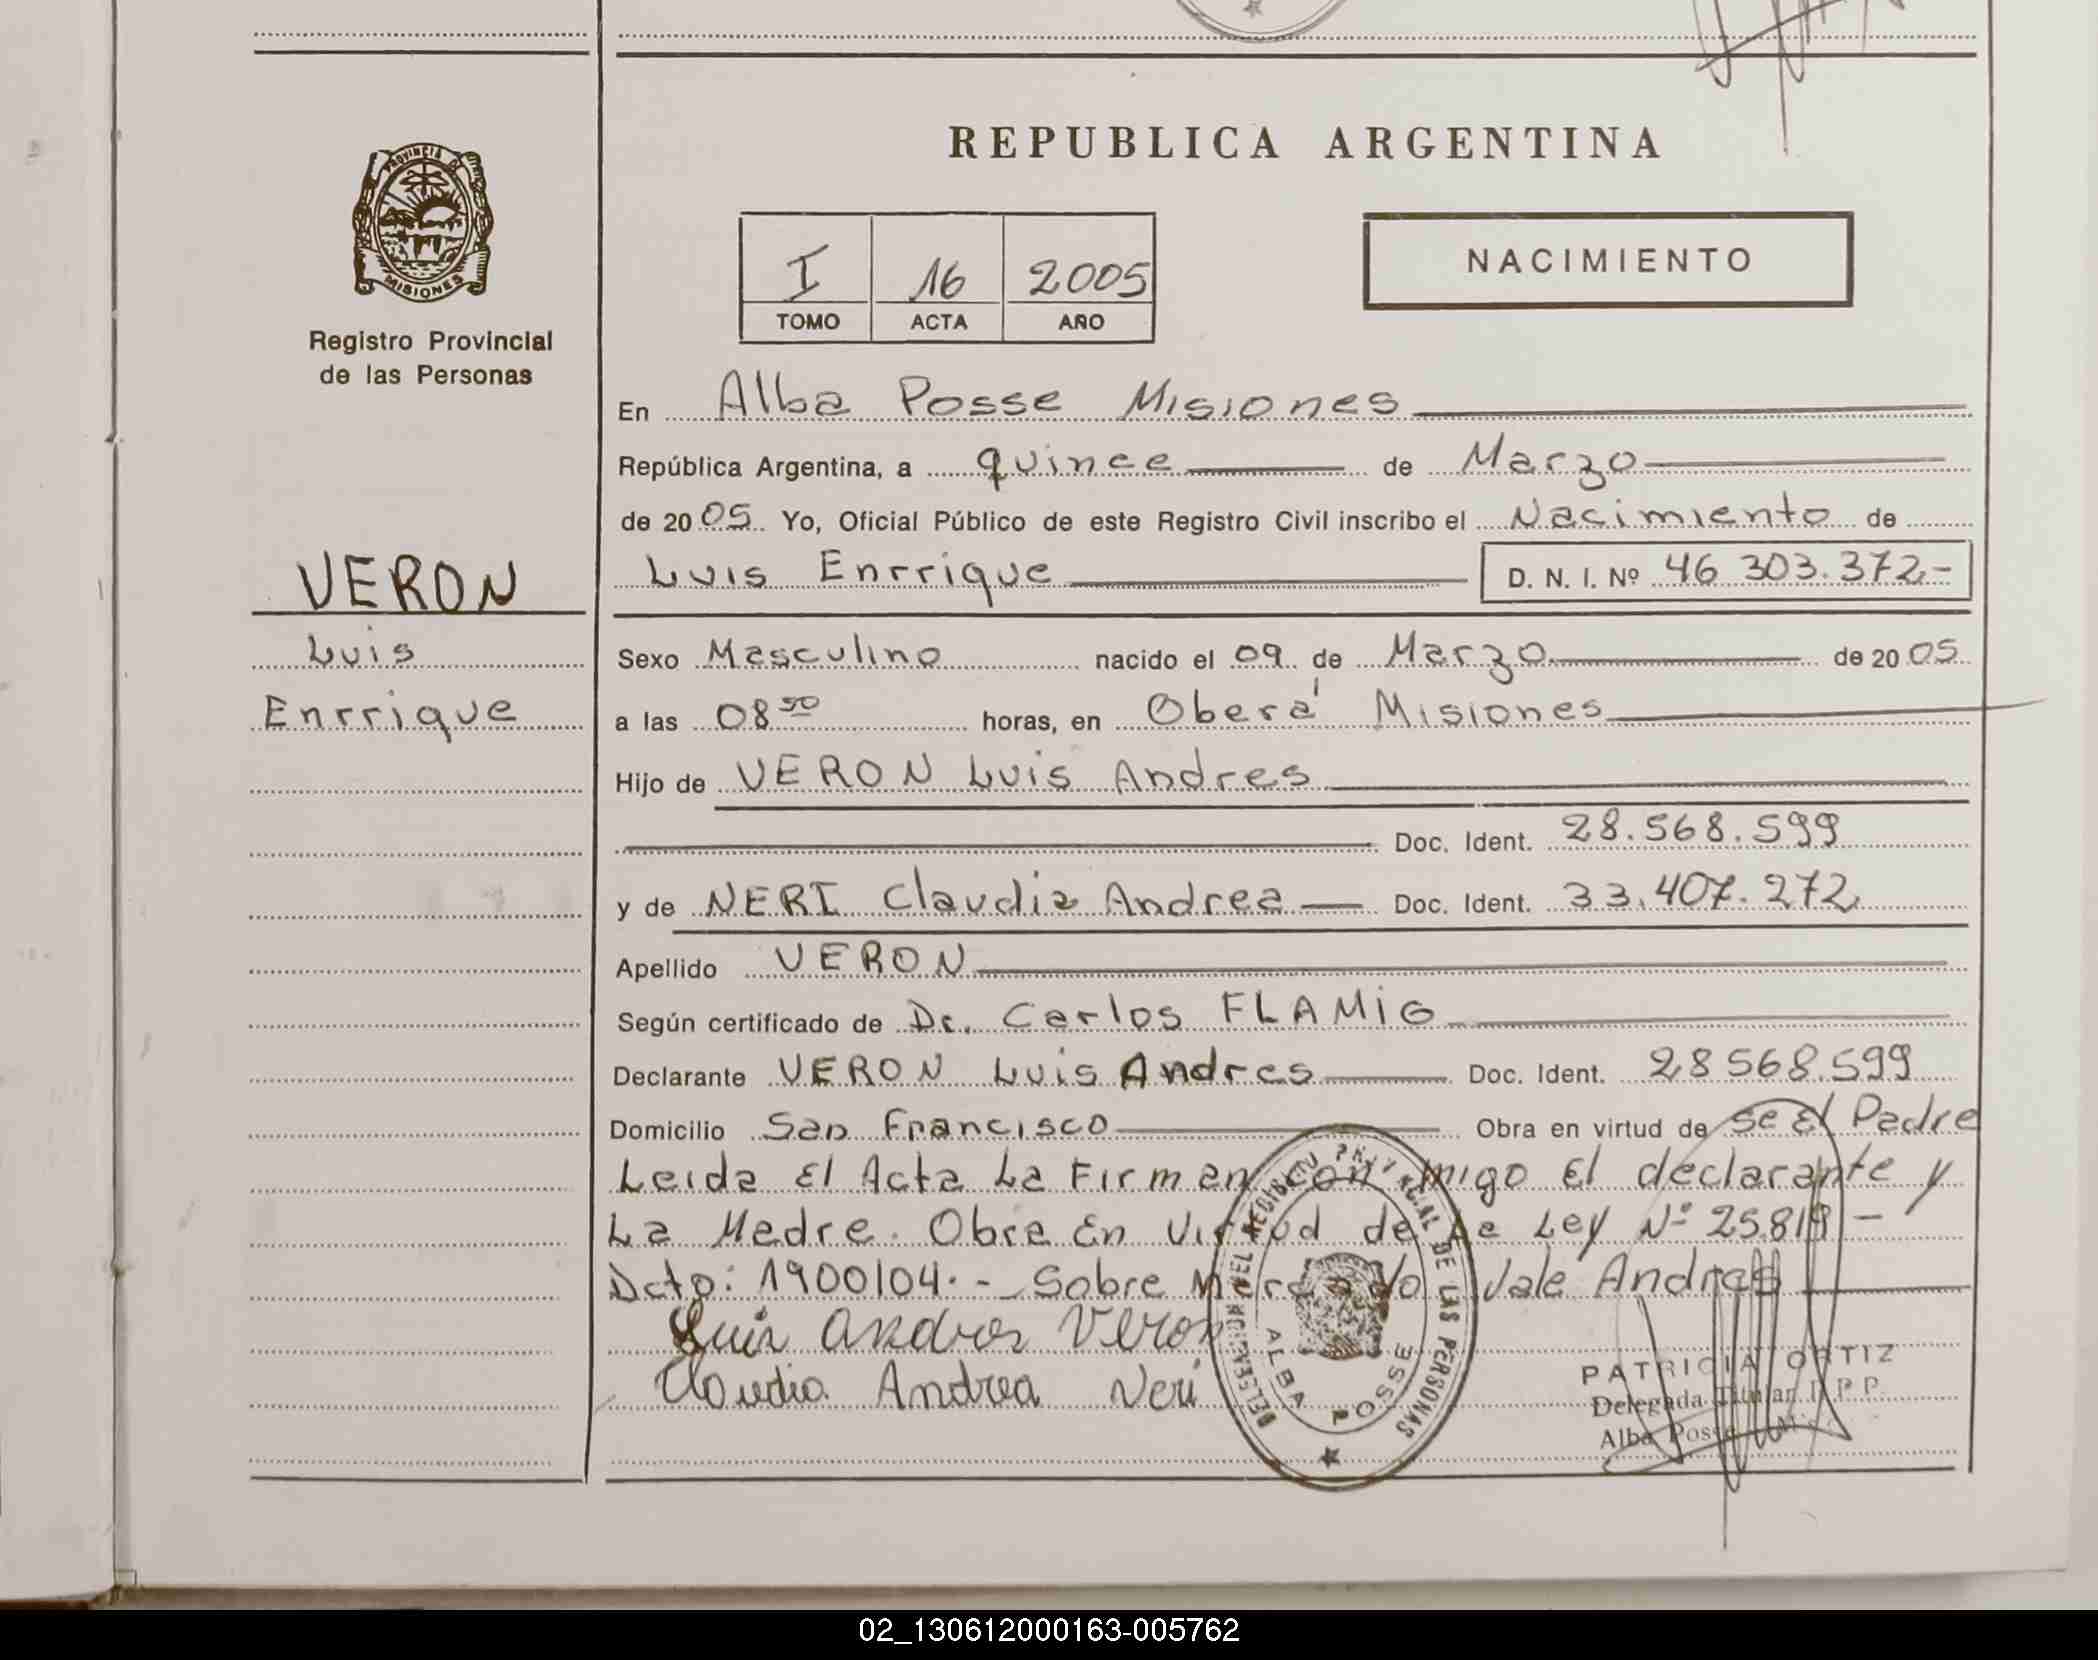 REPUBLICA ARGENTINA
PROVINCIA DE
MISIONES
Registro Provincial
de las Personas
I 16 2005
TOMO ACTA AÑO
NACIMIENTO
En Alba Posse Misiones
República Argentina, a quince de Marzo
de 2005 Yo, Oficial Público de este Registro Civil inscribo el Nacimiento de
Luis Enrrique D. N. I. Nº 46 303.372.-
VERON
Luis
Enrrique
Sexo Masculino nacido el 09 de Marzo de 2005
a las 08 50 horas, en Oberá Misiones
Hijo de VERON Luis Andres
Doc. Ident. 28.568.599
y de NERI Claudia Andrea Doc. Ident. 33.407.272
Apellido VERON
Según certificado de Dr. Carlos FLAMIG
Declarante VERON Luis Andres Doc. Ident. 28568.599
Domicilio San Francisco Obra en virtud de Se El Padre
Leida El Acta La Firman con migo El declarante y
La Madre. Obra En Virtud de La Ley Nº 25.819 -
Dcto: 1900/04.- Sobre Vale Andres
Luis Andres Veron
Claudia Andrea Neri
DELEGACION DEL REGISTRO PROVINCIAL DE LAS PERSONAS
ALBA POSSE
PATRICIA ORTIZ
Delegada Titular R.P.P.
Alba Posse Mnes
02_130612000163-005762